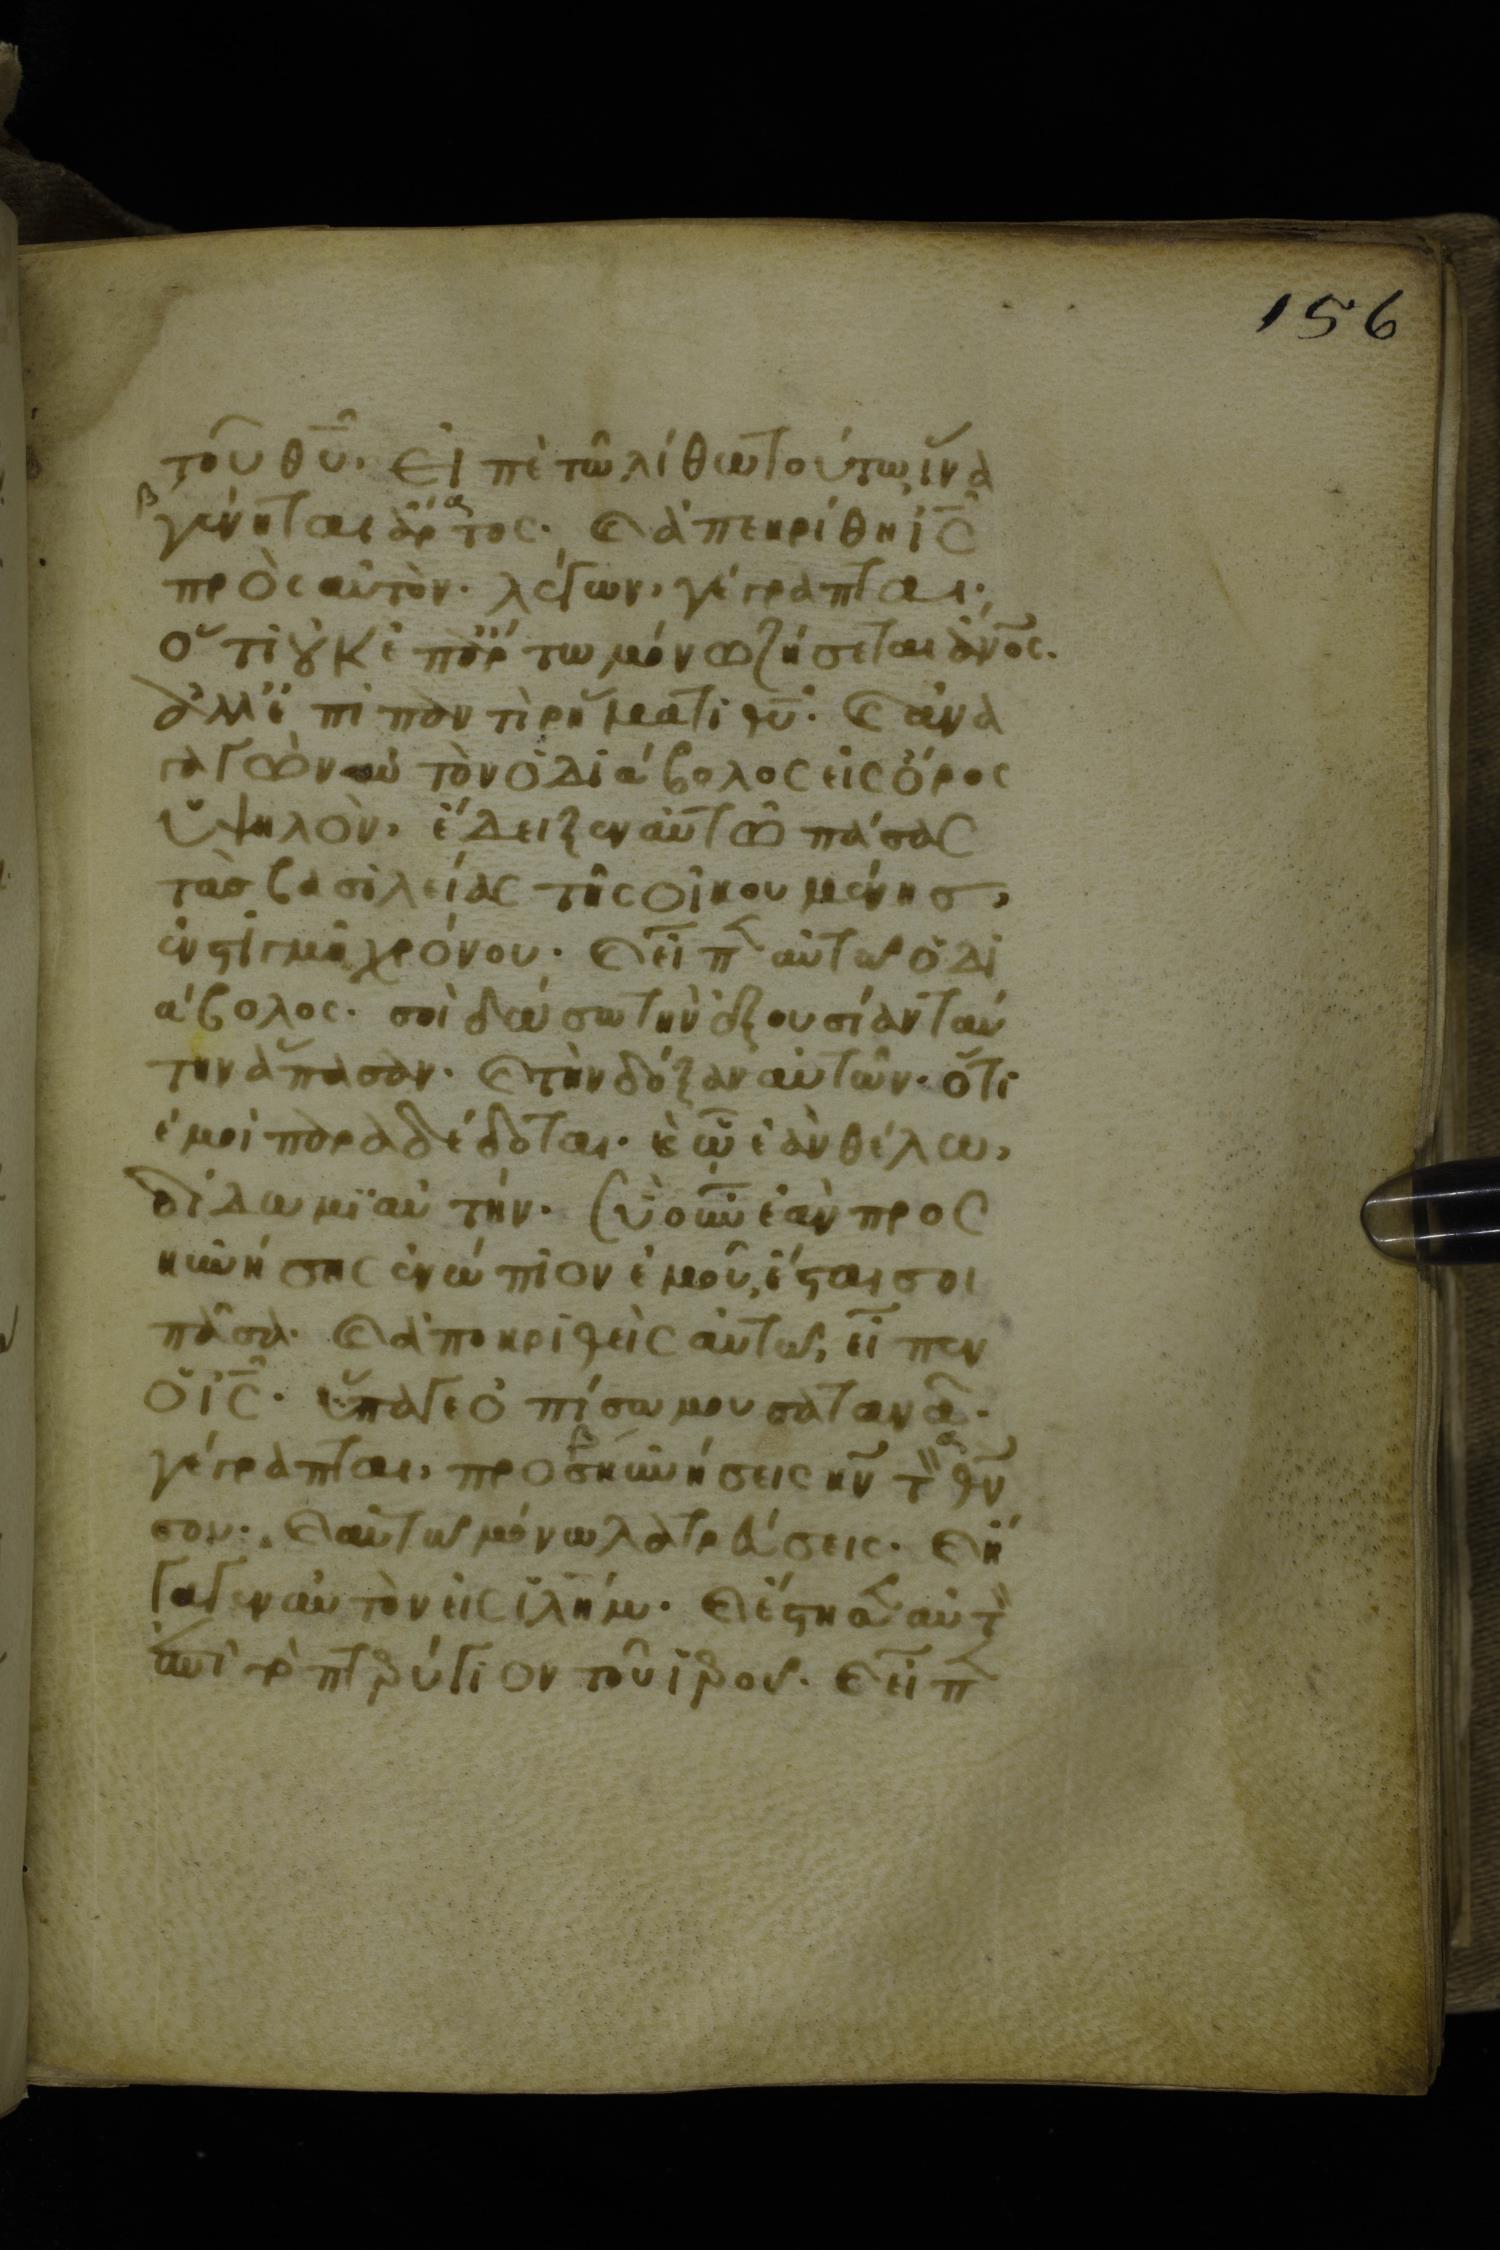 156
τοῦ θῦ· εἰπὲ τῶ λίθω τούτω, ἵνα
γένηται ἄρτος· καὶ ἀπεκρίθη ἰς
πρὸς αὐτὸν· λέγων, γέγραπται·
ὅτι οὐκ ἐπ ἄρτω μόνω ζήσεται ἀνος·
ἀλλ' ἐπὶ παντὶ ρήματι θῦ· καὶ ἀνα
γαγὼν αὐτὸν ὁ διάβολος εἰς ὄρος
ὑψηλὸν, ἔδειξεν αὐτῶ πάσας
τὰσ βασιλείας τῆς οἰκουμένησ,
ἐν στιγμῆ χρόνου· καὶ εἶπ αὐτῶ ὁ δι
άβολος· σοὶ δώσω τὴν ἐξουσίαν ταύ
την ἅπασαν· καὶ τὴν δόξαν αὐτῶν· ὅτι
ἐμοὶ παραδέδοται· κὲ ὧ ἐὰν θέλω,
δίδωμϊ αὐτήν· σὺ οὖν ἐὰν προς
κυνήσης ἐνώπιον ἐμοῦ, ἔσται σοι
πᾶσα· καὶ ἀποκριθεὶς αὐτῶ, εἶπεν
ὁ ἰς· ὕπαγε ὀπίσω μου σατανᾶ·
γέγραπται, προσκυνήσεις κν τὸν θν
σου· καὶ αὐτῶ μόνω λατρεύσεις· καὶ ἤ
γαγεν αὐτὸν εἰς ἰλήμ· καὶ ἔστησεν αὐτὸν
ἐπὶ τὸ πτερύγιον τοῦ ἱεροῦ· καὶ εἶπ